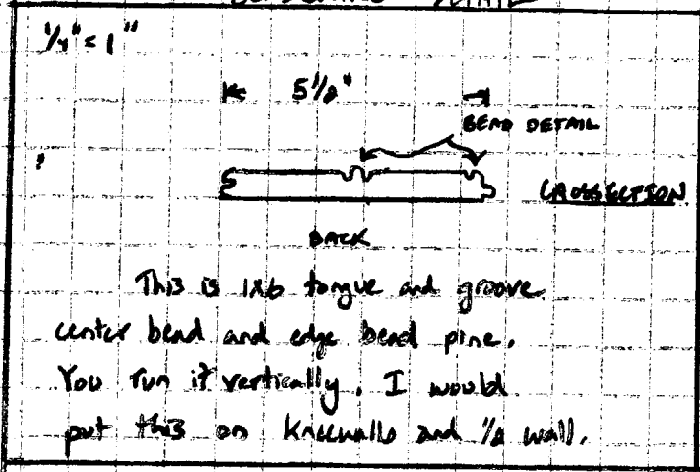 1/4" = 1"
5 1/2"
BEAD DETAIL
CROSSECTION
BACK
This is 1x6 tongue and groove
center bead and edge bead pine.
You run it vertically. I would
put this on kneewalls and 1/2 wall.